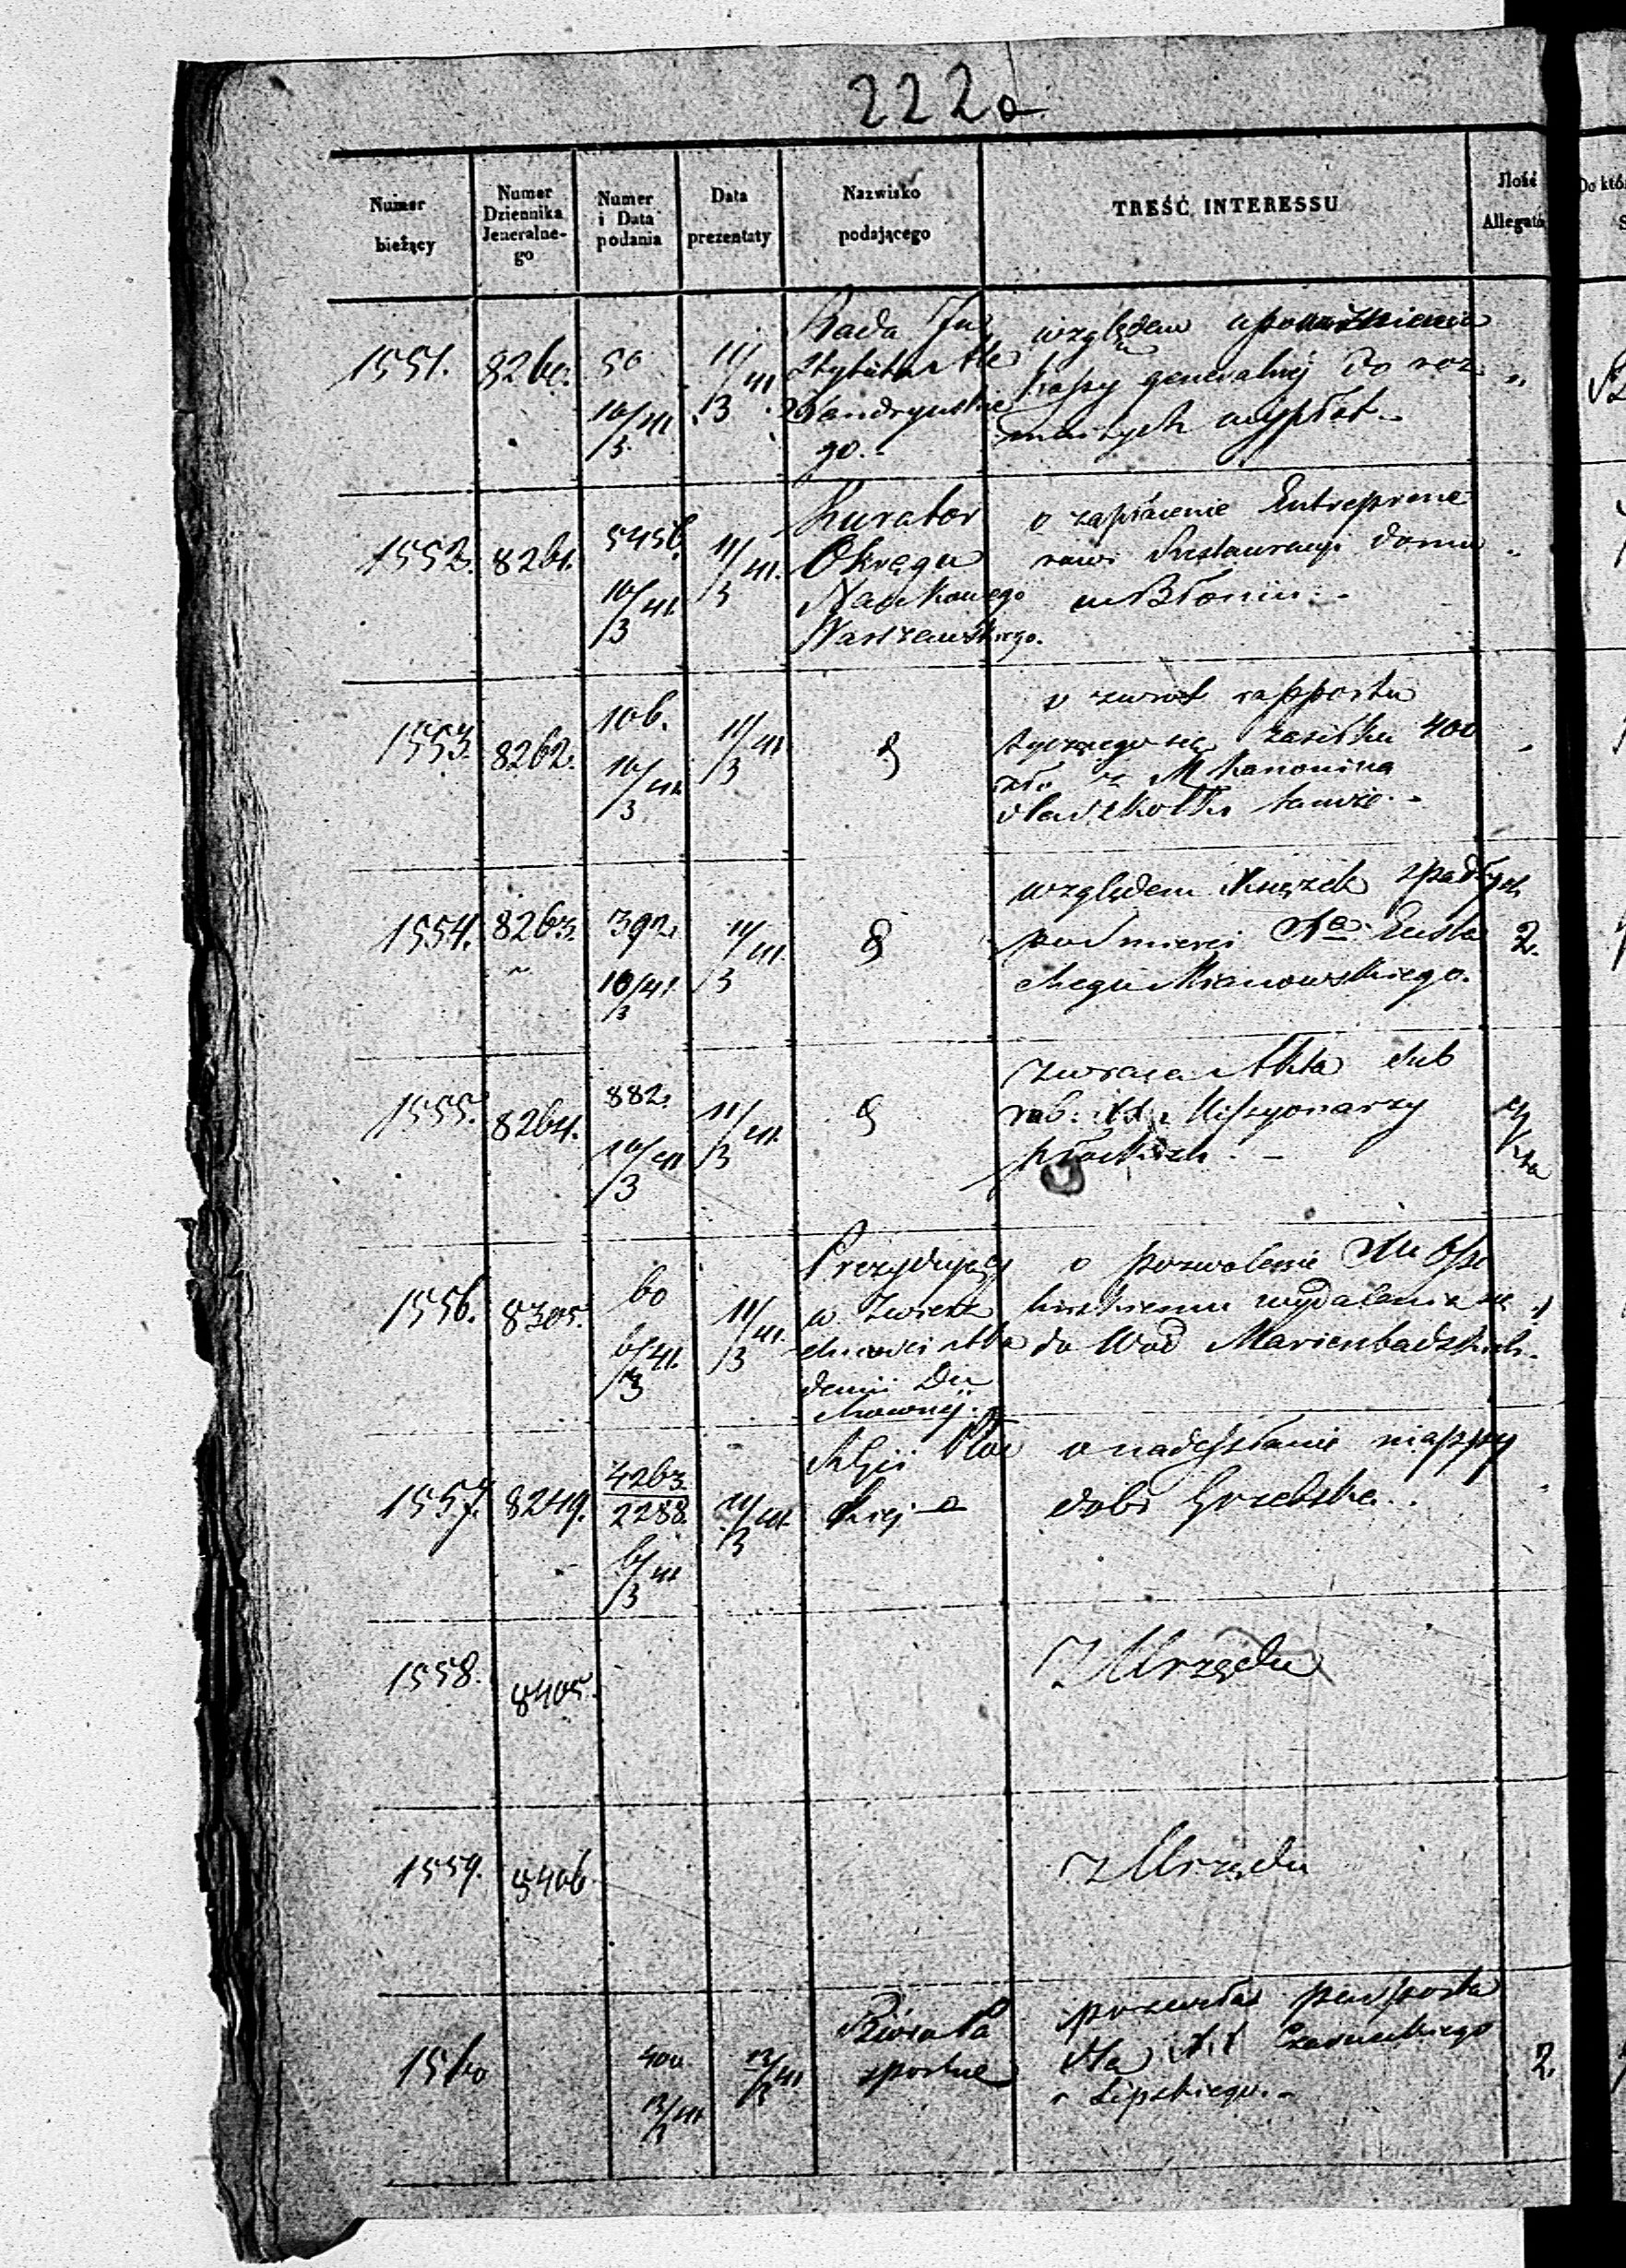 222a
Numer bieżący
Numer Dziennika Jeneralne-go
Numer i Data podania
Data prezentaty
Nazwisko podającego
TREŚĆ INTERESSU
Ilość Allegató
Do któ
1551. 8260. 50 10/3 41 11/3 41
Rada In
stytutu Ale
xandryńskie
go.
względem upoważnienia
kassy generalnéj do roz
maitych wypłat.
1552. 8261. 5456. 10/3 41. 11/3 41.
Kurator
Okręgu
Naukowego
Warszawskiego.
o zapłacenie Entreprene
rowi Restauracyi domu
w Błoniu.
1553. 8262. 106. 10/3 41. 11/3 41
o zwrot rapportu
tyczącego się zasiłku 400
złp. z M Kanonina
dla szkółki tamże.
1554. 8263. 392. 10/3 41 11/3 41.
względem Książek spadłych
po śmierci Xa Eusta
chego Mianowskiego.
2.
1555. 8264. 882. 10/3 41 11/3 41.
zwraca Akta sub
rub: XX. Missyonarzy
płockich.
1556. 8305. 60 6/3 41. 11/3 41.
Prezydujący
w Zwierz
chności Aka
demii Du
chownej.
o pozwolenie
wydalenia się
do Wód Marienbadzkich.
1557. 8249. 4263/2288. 6/3 41 11/3 41.
Płoc
kiej
o nadesłanie mappy
dóbr Grzebska.
1558. 8405.
Z Urzędu
1559. 8406
Z Urzędu
1560 400 12/3 41 12/3 41
Biórо Pa
sportue
paszporta
dla XX Czarneckiego
i Lipskiego.
2.